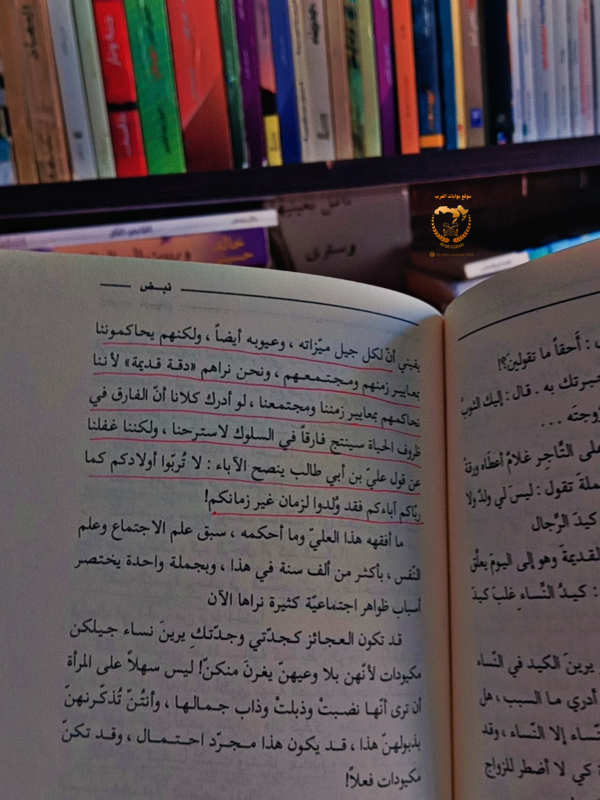 موقع بوابات العرب
نبض
يقيني أنّ لكل جيل ميّزاته ، وعيوبه أيضاً ، ولكنهم يحاكموننا
بمعايير زمنهم ومجتمعهم ، ونحن نراهم «دقة قديمة» لأننا
نحاكمهم بمعايير زمننا ومجتمعنا ، لو أدرك كلانا أنّ الفارق في
ظروف الحياة سينتج فارقاً في السلوك لاسترحنا ، ولكننا غفلنا
عن قول عليّ بن أبي طالب ينصح الآباء : لا تُربّوا أولادكم كما
ربّاكم آباءكم فقد وُلدوا لزمان غير زمانكم!
ما أفقهه هذا العليّ وما أحكمه ، سبق علم الاجتماع وعلم
النّفس ، بأكثر من ألف سنة في هذا ، وبجملة واحدة يختصر
أسباب ظواهر اجتماعيّة كثيرة نراها الآن
قد تكون العجائز كجدّتي وجدّتكِ يرينَ نساء جيلكن
مكيودات لأنّهن بلا وعيهنّ يغرنَ منكنّ! ليس سهلاً على المرأة
أن ترى أنّها نضبتْ وذبلتْ وذاب جمالها ، وأنتُنّ تُذكّرنهنّ
بذبولهنّ هذا ، قد يكون هذا مجرّد احتمال ، وقد تكنّ
مكيودات فعلاً!
: أَحقاً ما تقولينَ؟!
خبرتك به . قال : إليك الثوبُ
زوجته ...
على التّاجر غلامٌ أعطاه ورقة
جملة تقول : ليسَ لي ولدٌ ولا
كيدَ الرّجال
القديمة وهو إلى اليومَ يعلّق
: كيدُ النّساء غلبَ كيدَ
يرينَ الكيد في النّساء
أدري ما السبب ، هل
النّساء إلا النّساء ، وقد
كي لا أضطر للزواج